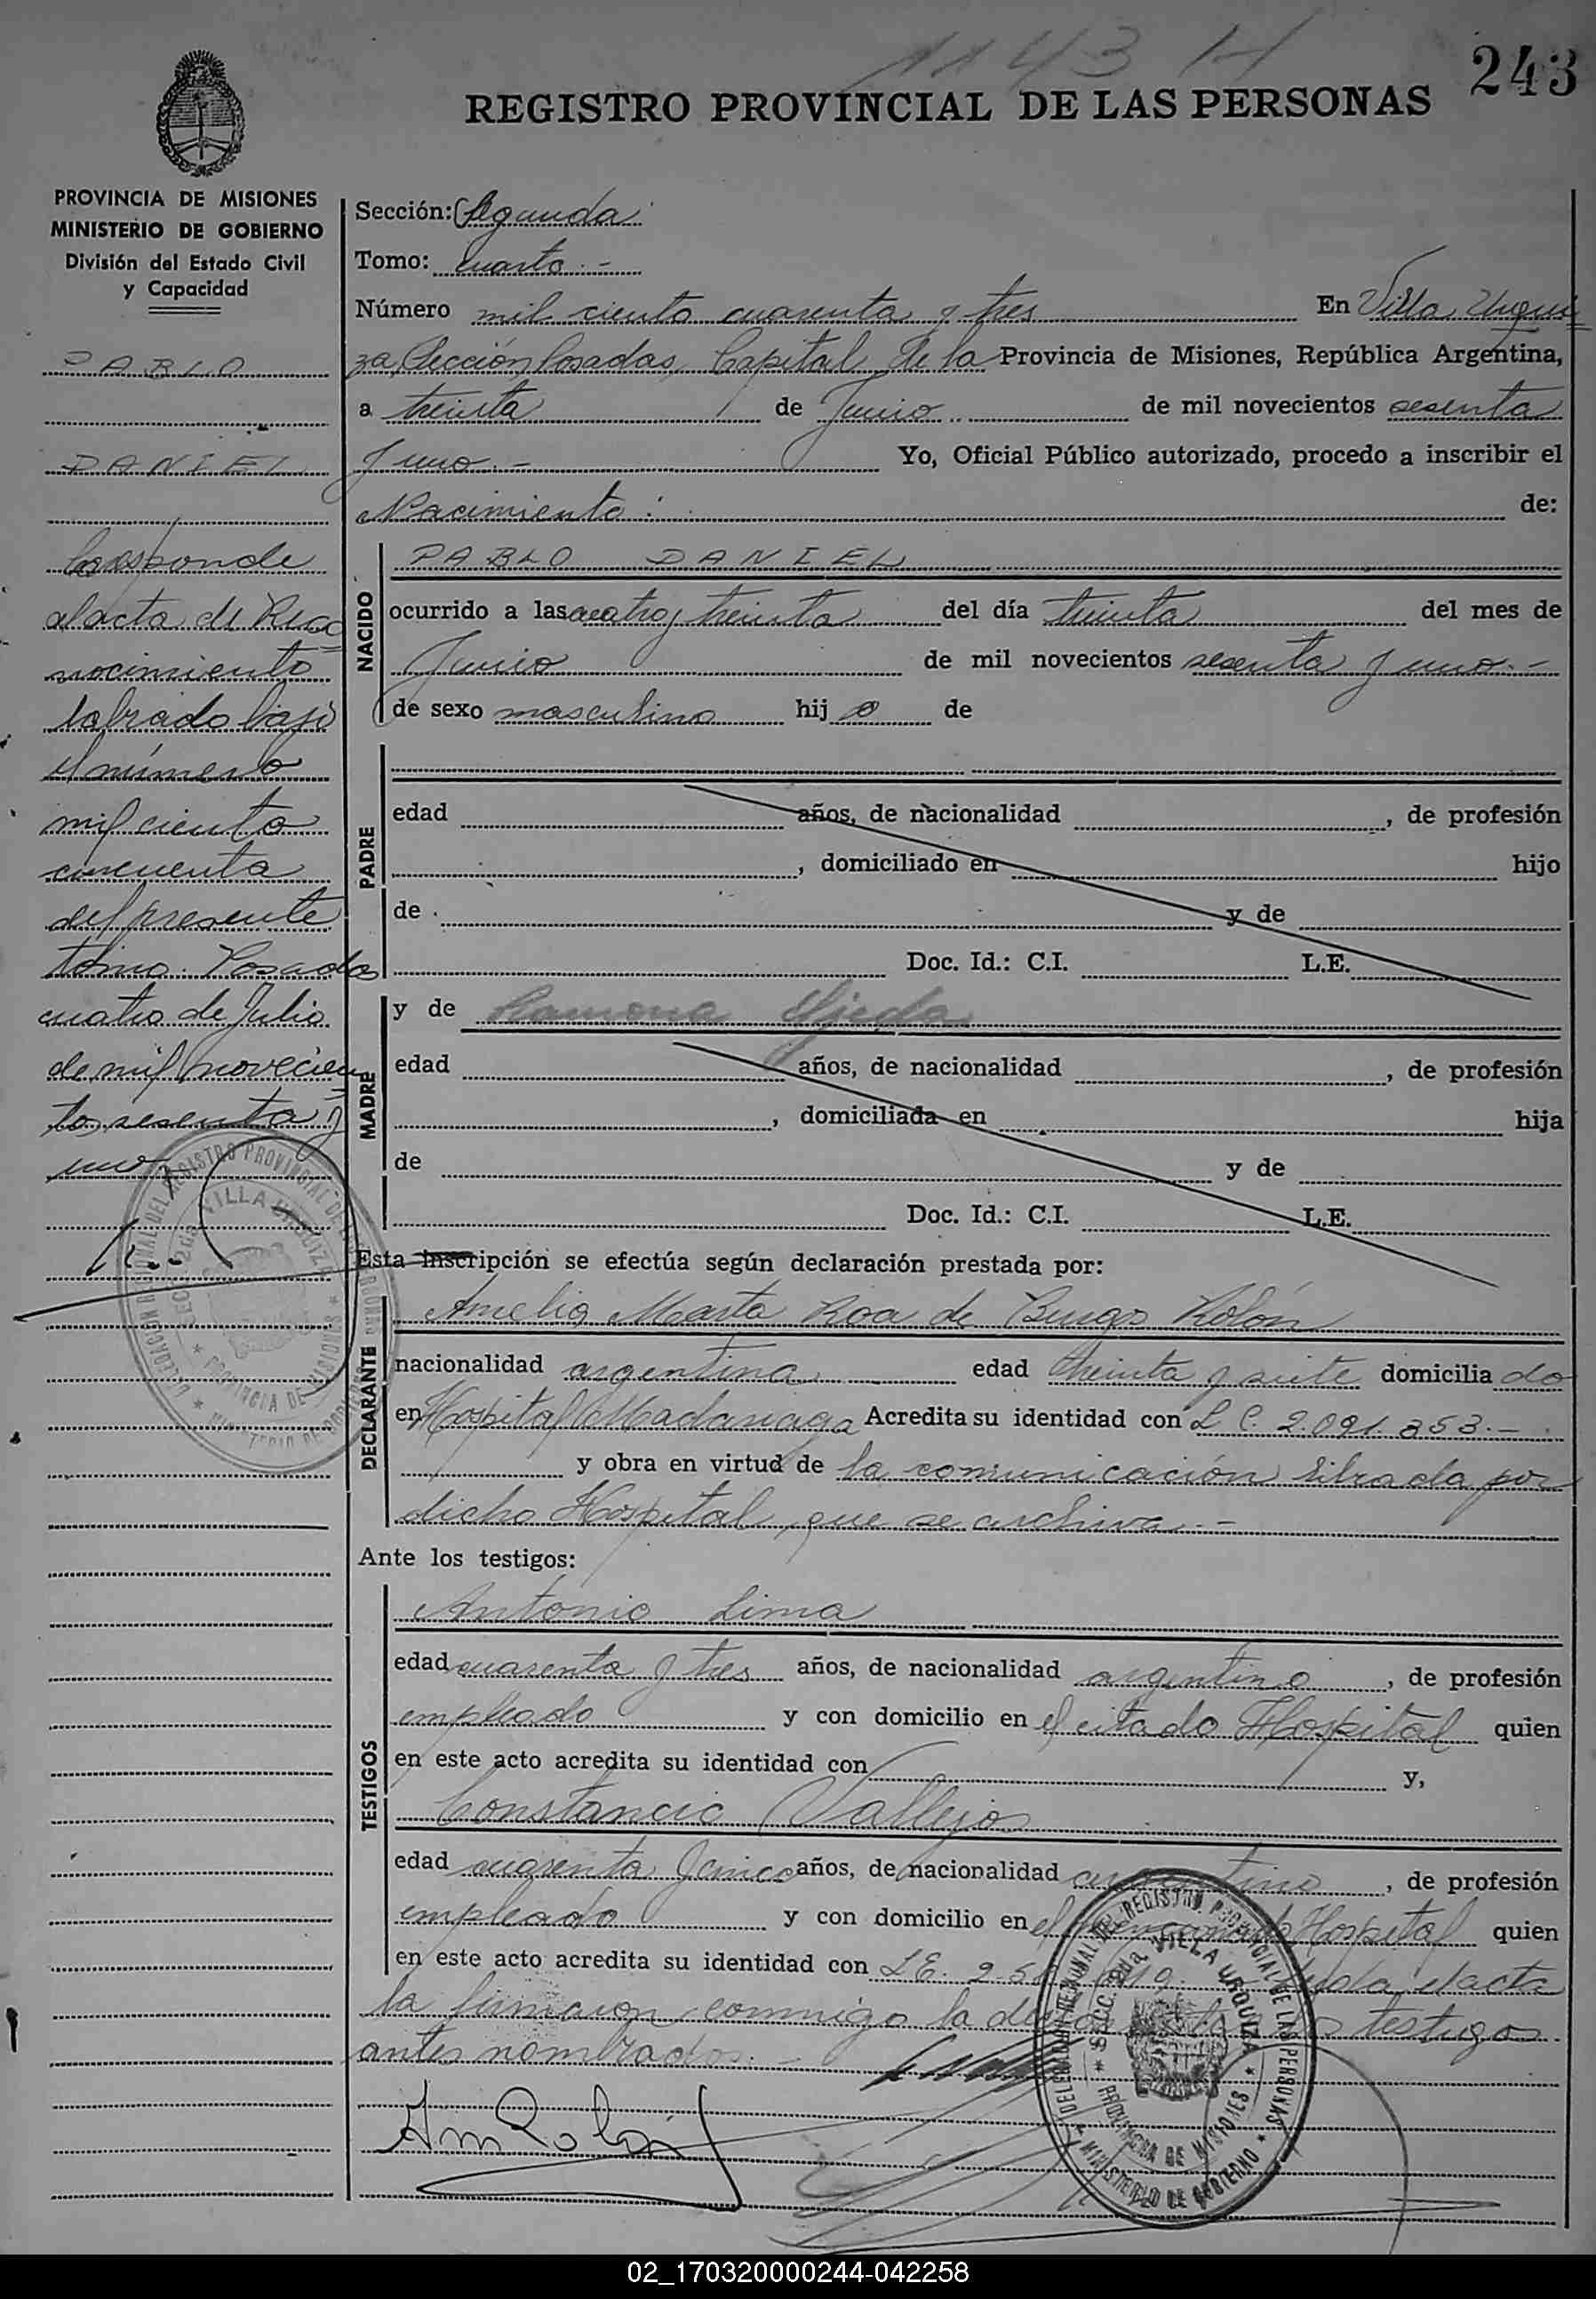 1143 H
243
REGISTRO PROVINCIAL DE LAS PERSONAS
PROVINCIA DE MISIONES
MINISTERIO DE GOBIERNO
División del Estado Civil
y Capacidad
PABLO
DANIEL
Corresponde
al acta de Reco
nocimiento
labrado bajo
el número
mil ciento
cincuenta
del presente
tomo. Posadas
cuatro de Julio
de mil novecien
tos sesenta y
uno
Sección: Segunda
Tomo: cuarto.-
Número mil ciento cuarenta y tres En Villa Urqui
za, Sección Posadas, Capital de la Provincia de Misiones, República Argentina,
a treinta de Junio de mil novecientos sesenta
y uno.- Yo, Oficial Público autorizado, procedo a inscribir el
Nacimiento: de:
NACIDO
PABLO DANIEL
ocurrido a las cuatro y treinta del día treinta del mes de
Junio de mil novecientos sesenta y uno.-
de sexo masculino hijo de
PADRE
edad años, de nacionalidad , de profesión
, domiciliado en hijo
de y de
Doc. Id.: C.I. L.E.
MADRE
y de Ramona Ojeda
edad años, de nacionalidad , de profesión
, domiciliada en hija
de y de
Doc. Id.: C.I. L.E.
Esta inscripción se efectúa según declaración prestada por:
DECLARANTE
Amelia Marta Roa de Burgo Kolón
nacionalidad argentina edad treinta y siete domiciliado
en Hospital Madariaga Acredita su identidad con L C. 2.091.853.-
y obra en virtud de la comunicación librada por
dicho Hospital, que se archiva.-
Ante los testigos:
TESTIGOS
Antonio Lima
edad cuarenta y tres años, de nacionalidad argentino, de profesión
empleado y con domicilio en el citado Hospital quien
en este acto acredita su identidad con y,
Constancio Vallejo
edad cuarenta y cinco años, de nacionalidad argentino, de profesión
empleado y con domicilio en el mencionado Hospital quien
en este acto acredita su identidad con L.E. 2.5 acta
la firman conmigo la los testigos
antes nombrados.-
DELEGACION REGIONAL DEL REGISTRO PROVINCIAL DE LAS PERSONAS
SECC. 2da. VILLA URQUIZA
PROVINCIA DE MISIONES
MINISTERIO DE GOBIERNO
02_170320000244-042258